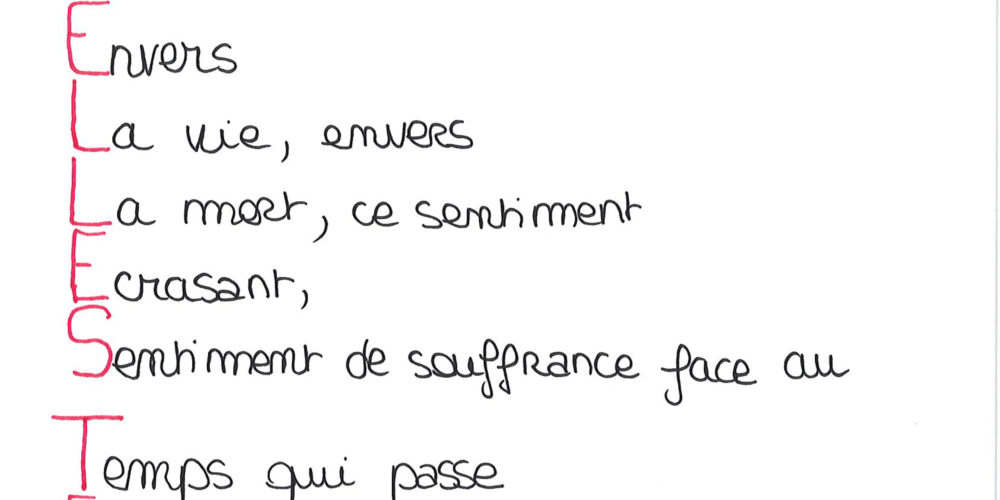 Envers
La vie, envers
La mort, ce sentiment
Ecrasant,
Sentiment de souffrance face au
Temps qui passe